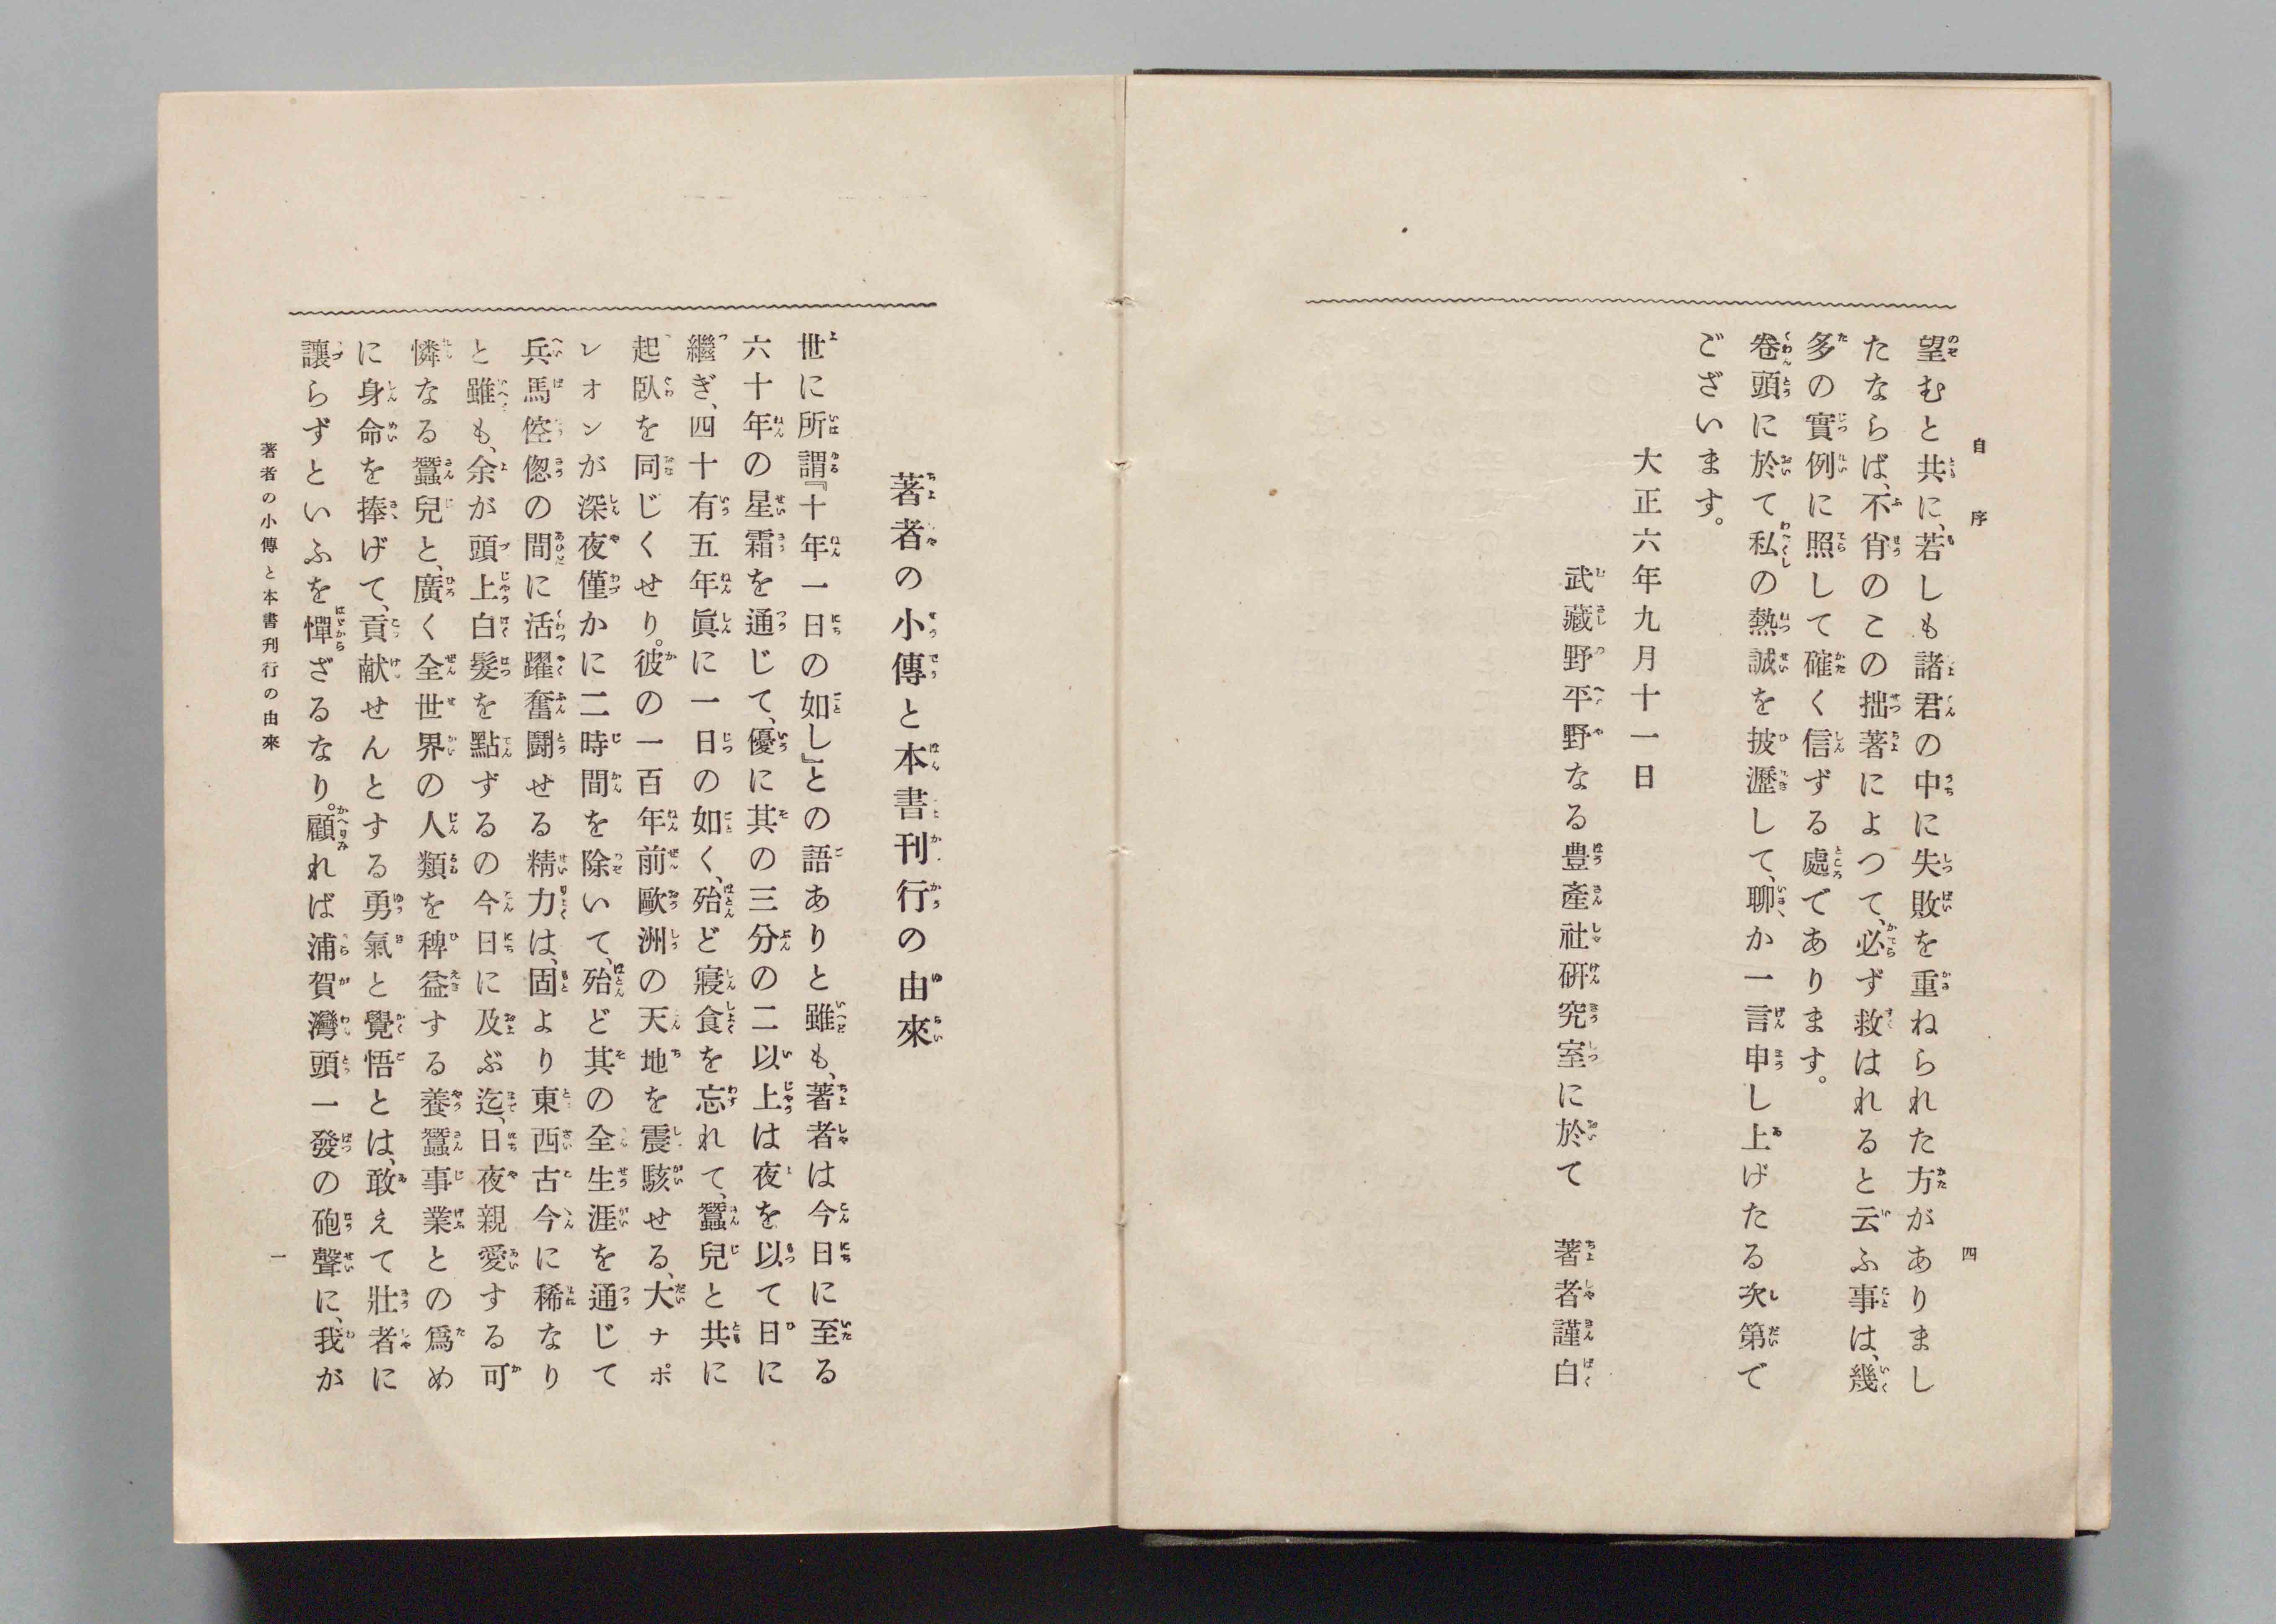 自序
四
望むと共に、若しも諸君の中に失敗を重ねられた方がありまし
たならば、不肖のこの拙著によつて、必ず救はれると云ふ事は、幾
多の實例に照して確く信ずる處であります。
卷頭に於て私の熱誠を披瀝して、聊か一言申し上げたる次第で
ございます。
大正六年九月十一日
武藏野平野なる豊產社研究室に於て　著者謹白
著者の小傳と本書刊行の由來
世に所謂『十年一日の如し』との語ありと雖も、著者は今日に至る
六十年の星霜を通じて、優に其の三分の二以上は夜を以て日に
繼ぎ、四十有五年眞に一日の如く、殆ど寢食を忘れて、蠶兒と共に
起臥を同じくせり。彼の一百年前歐洲の天地を震駭せる、大ナポ
レオンが深夜僅かに二時間を除いて、殆ど其の全生涯を通じて
兵馬倥偬の間に活躍奮鬪せる精力は、固より東西古今に稀なり
と雖も、余が頭上白髮を點ずるの今日に及ぶ迄、日夜親愛する可
憐なる蠶兒と、廣く全世界の人類を稗益する養蠶事業との爲め
に身命を捧げて、貢献せんとする勇氣と覺悟とは、敢えて壯者に
讓らずといふを憚からざるなり。顧れば浦賀灣頭一發の砲聲に、我が
著者の小傳と本書刊行の由來
一